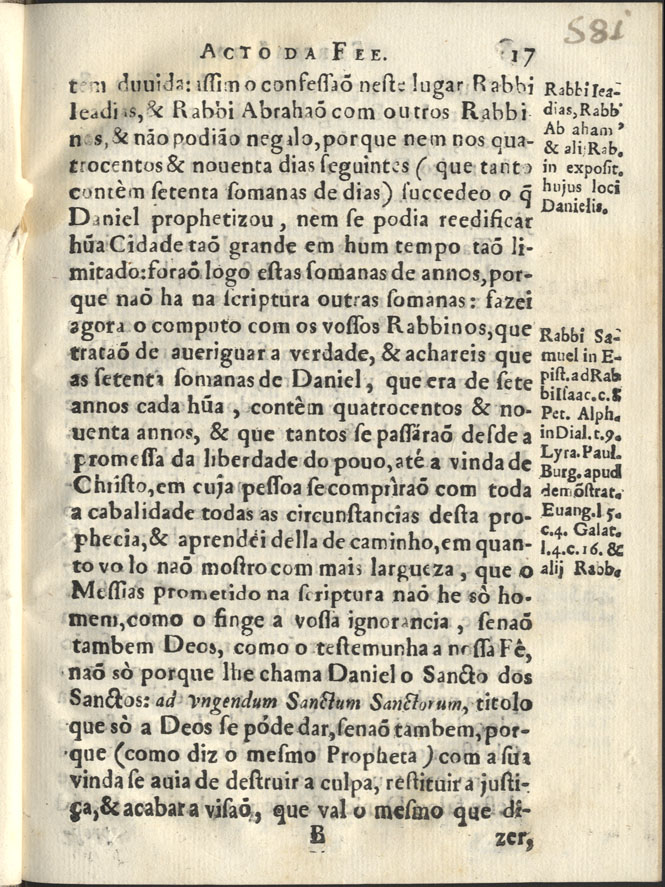 581
ACTO DA FEE. 17
tem duuida: assim o confessaõ neste lugar Rabbi
Ieadias, & Rabbi Abrahaõ com outros Rabbi
nos, & não podião negalo, porque nem nos qua-
trocentos & nouenta dias seguintes ( que tanto
contèm setenta somanas de dias) succedeo o q̃
Daniel prophetizou, nem se podia reedificar
hũa Cidade taõ grande em hum tempo taõ li-
mitado: foraõ logo estas somanas de annos, por-
que naõ ha na scriptura outras somanas: fazei
agora o computo com os vossos Rabbinos, que
trataõ de aueriguar a verdade, & achareis que
as setenta somanas de Daniel, que era de sete
annos cada hũa, contèm quatrocentos & no-
uenta annos, & que tantos se passàraõ desde a
promessa da liberdade do pouo, até a vinda de
Christo, em cuja pessoa se comprìraõ com toda
a cabalidade todas as circunstancias desta pro-
phecia, & aprendéi della de caminho, em quan-
to vo lo naõ mostro com mais largueza, que o
Messias prometido na scriptura naõ he sò ho-
mem, como o finge a vossa ignorancia, senaõ
tambem Deos, como o testemunha a nossa Fê,
naõ sò porque lhe chama Daniel o Sancto dos
Sanctos: ad vngendum Sanctum Sanctorum, titolo
que sò a Deos se póde dar, senaõ tambem, por-
que (como diz o mesmo Propheta ) com a sua
vinda se auia de destruir a culpa, restituir a justi-
ça, & acabar a visaõ, que val o mesmo que di-
B zer,
Rabbi Iea-
dias, Rabb'
Ab aham'
& alij Rab.
in exposit.
hujus loci
Danielis.
Rabbi Sa-
muel in E-
pist. ad Rab
bi Isaac. c. 8
Pet. Alph.
in Dial. t. 9.
Lyra. Paul.
Burg. apud
demõstrat.
Euang. l 5.
c. 4. Galat.
l. 4. c. 16. &
alij Rabb.